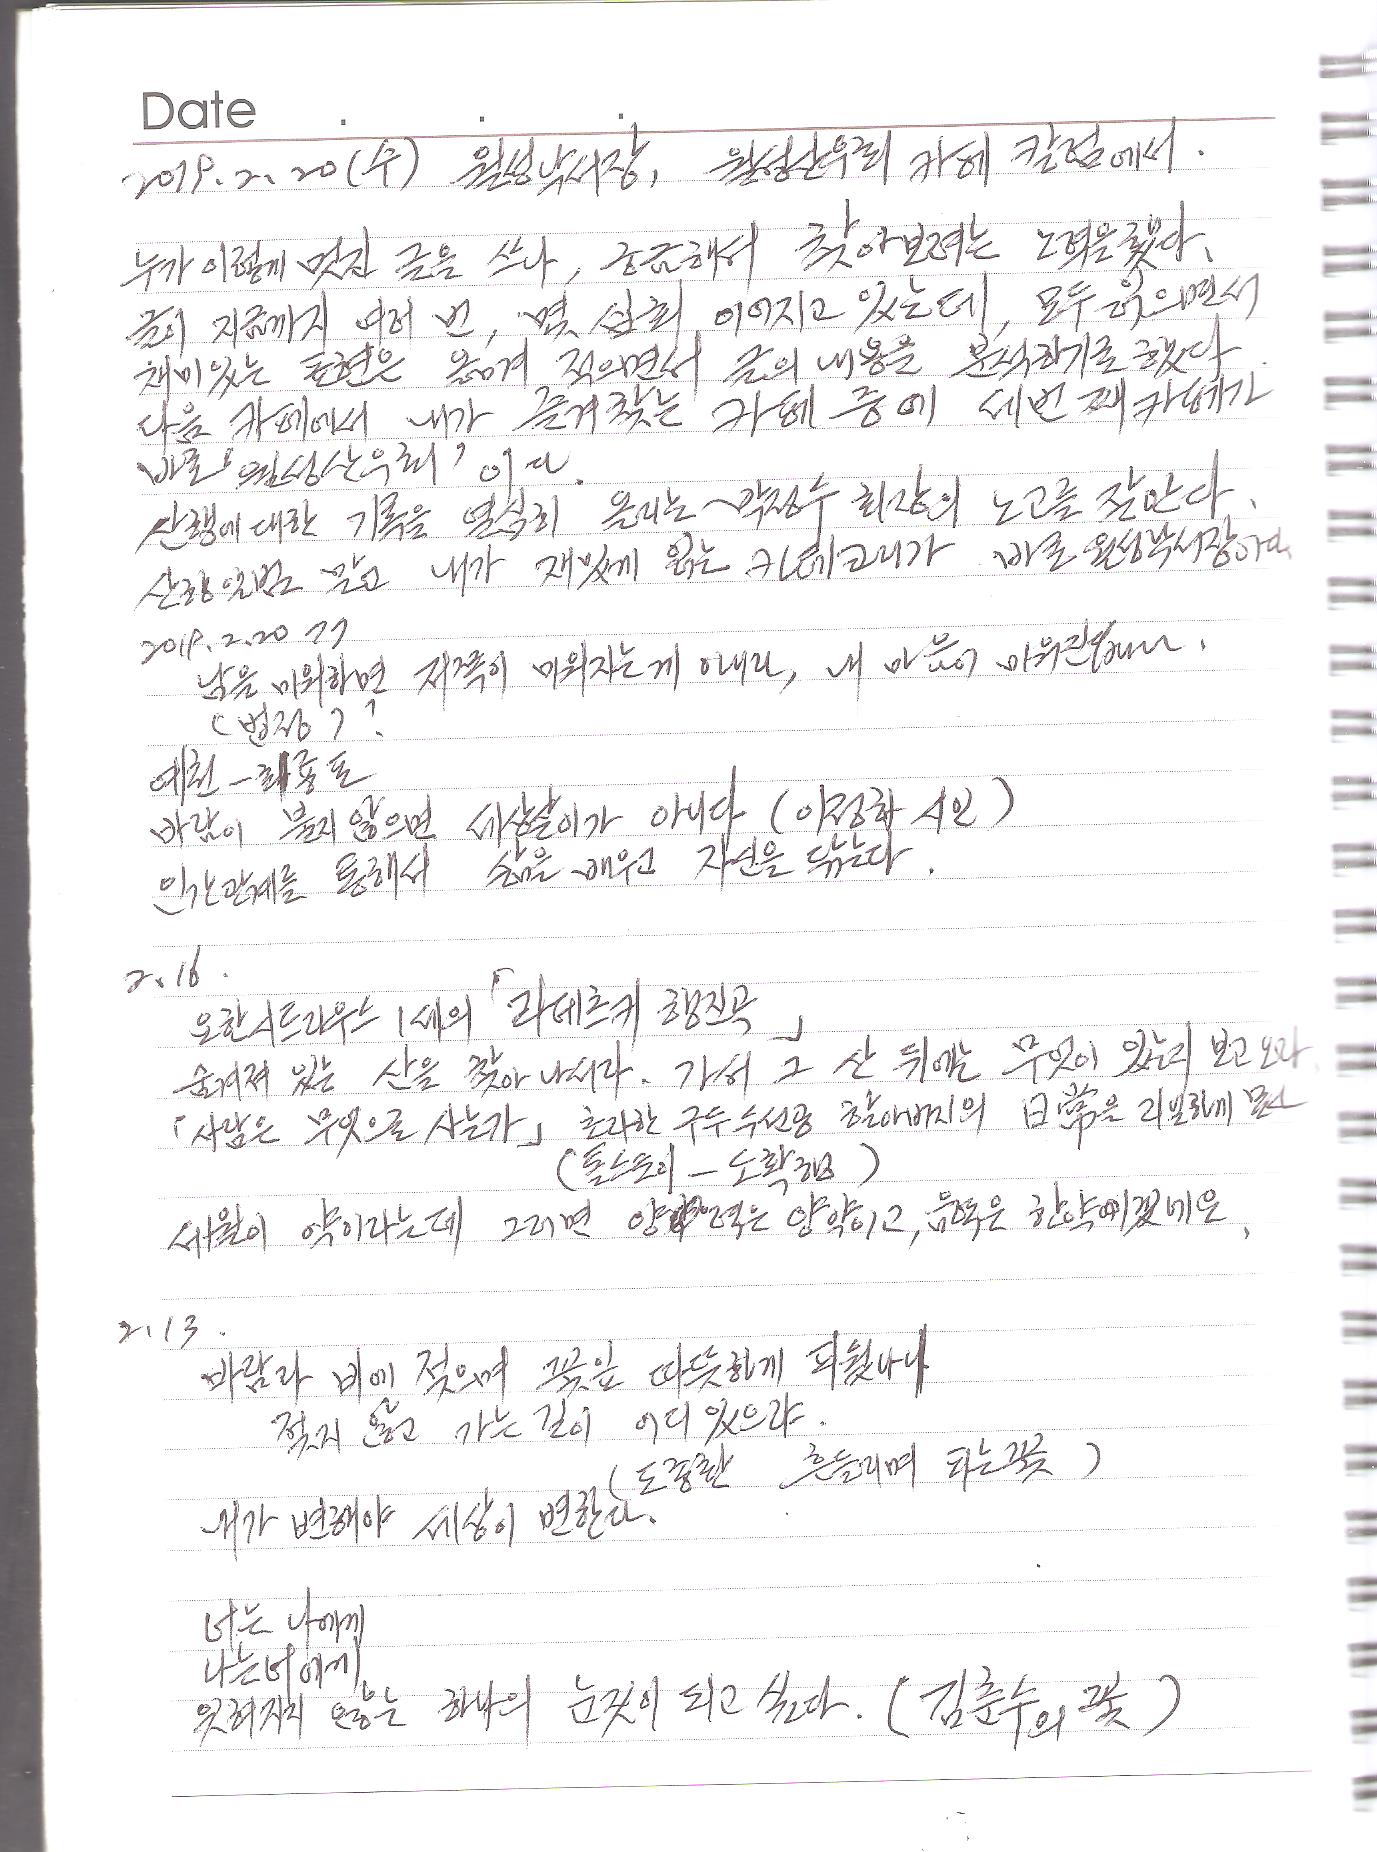 Date . . .
2019.2.20(수) 월성낙서장, 월성산우회 카페 칼럼에서.
누가 이렇게 멋진 글을 쓰나, 궁금해서 찾아보려는 노력을 했다.
글이 지금까지 여러 번, 몇 십회 이어지고 있는데, 모두 읽으면서
재미있는 표현은 옮겨 적으면서 글의 내용을 분석하기로 했다.
다음 카페에서 내가 즐겨찾는 카페 중에 세번째 카페가
바로 '월성산우회' 이다.
산행에 대한 기록을 열심히 올리는 곽정수 회장의 노고를 잘 안다.
산행일범 말고 내가 재밌게 읽는 카테고리가 바로 월성낙서장이다.
2019.2.20
남을 미워하면 저쪽이 미워지는게 아니라, 내 마음이 미워진다.
(법정)?
예천 - 회룡포
바람이 불지 않으면 세상살이가 아니다 (이정하 시인)
인간관계를 통해서 삶을 배우고 자신을 닦는다.
2.16.
요한시트라우스 1세의 「라데츠키 행진곡」
숨겨져 있는 산을 찾아 나서라. 가서 그 산 뒤에는 무엇이 있는지 보고 오라
「사람은 무엇으로 사는가」 초라한 구두수선공 할아버지의 日常을 리얼하게 묘사
(톨스토이 - 도락행)
세월이 약이라는데 그러면 양력은 양약이고, 음력은 한약이겠네요.
2.13.
바람과 비에 젖으며 꽃잎 따뜻하게 피웠나니
젖지 않고 가는 길이 어디 있으랴.
(도종환 흔들리며 피는 꽃)
내가 변해야 세상이 변한다.
너는 나에게
나는 너에게
잊혀지지 않는 하나의 눈짓이 되고 싶다. (김춘수의 꽃)